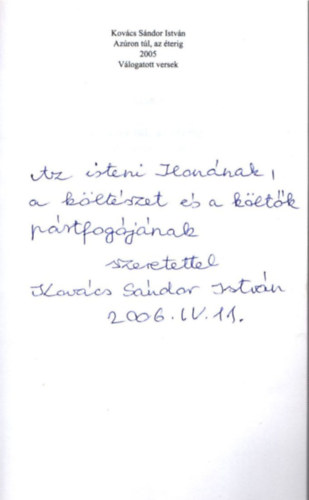 Kovács Sándor István
Azúron túl, az éterig
2005
Válogatott versek
Az isteni Ilonának,
a költészet és a költők
pártfogójának
szeretettel
Kovács Sándor István
2006. IV. 11.